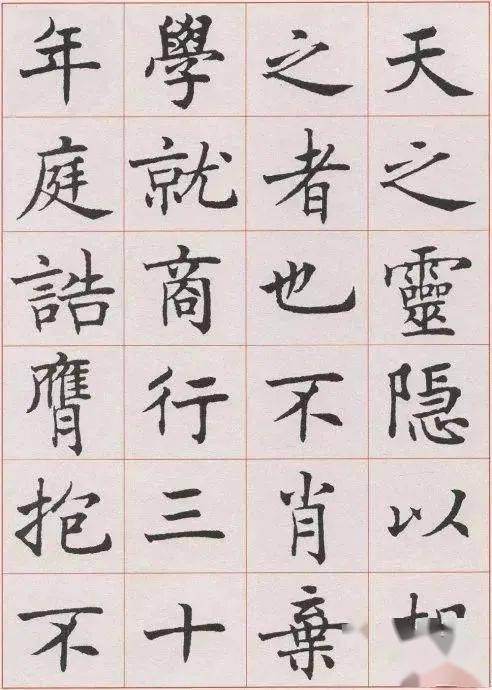 天之靈隐以
之者也不肖棄
學就商行三十
年庭誥膺抱不